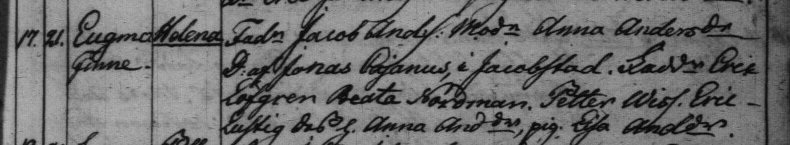 17. 21. Eugma Helena Fadn Jacob Ands. Modn Anna Andersdr
Ginne. D. af Jonas Cajanus, i Jacobstad. Faddr Eric
Löfgren Beata Nordman. Petter Wiss. Eric
Lustig Anna Anddr, pig. Lisa Anddr.